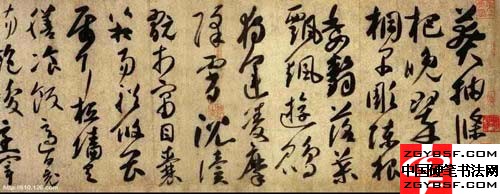 莽抽條
杷晚翠
桐早彫陳根
委翳落葉
飄颻遊鵾
獨運凌摩
絳霄耽讀
翫市寓目囊
箱易輶攸畏
屬耳垣牆
膳飡飯適口
宰
ZGYBSF.COM
中国硬笔书法网
ZGYBSF.COM